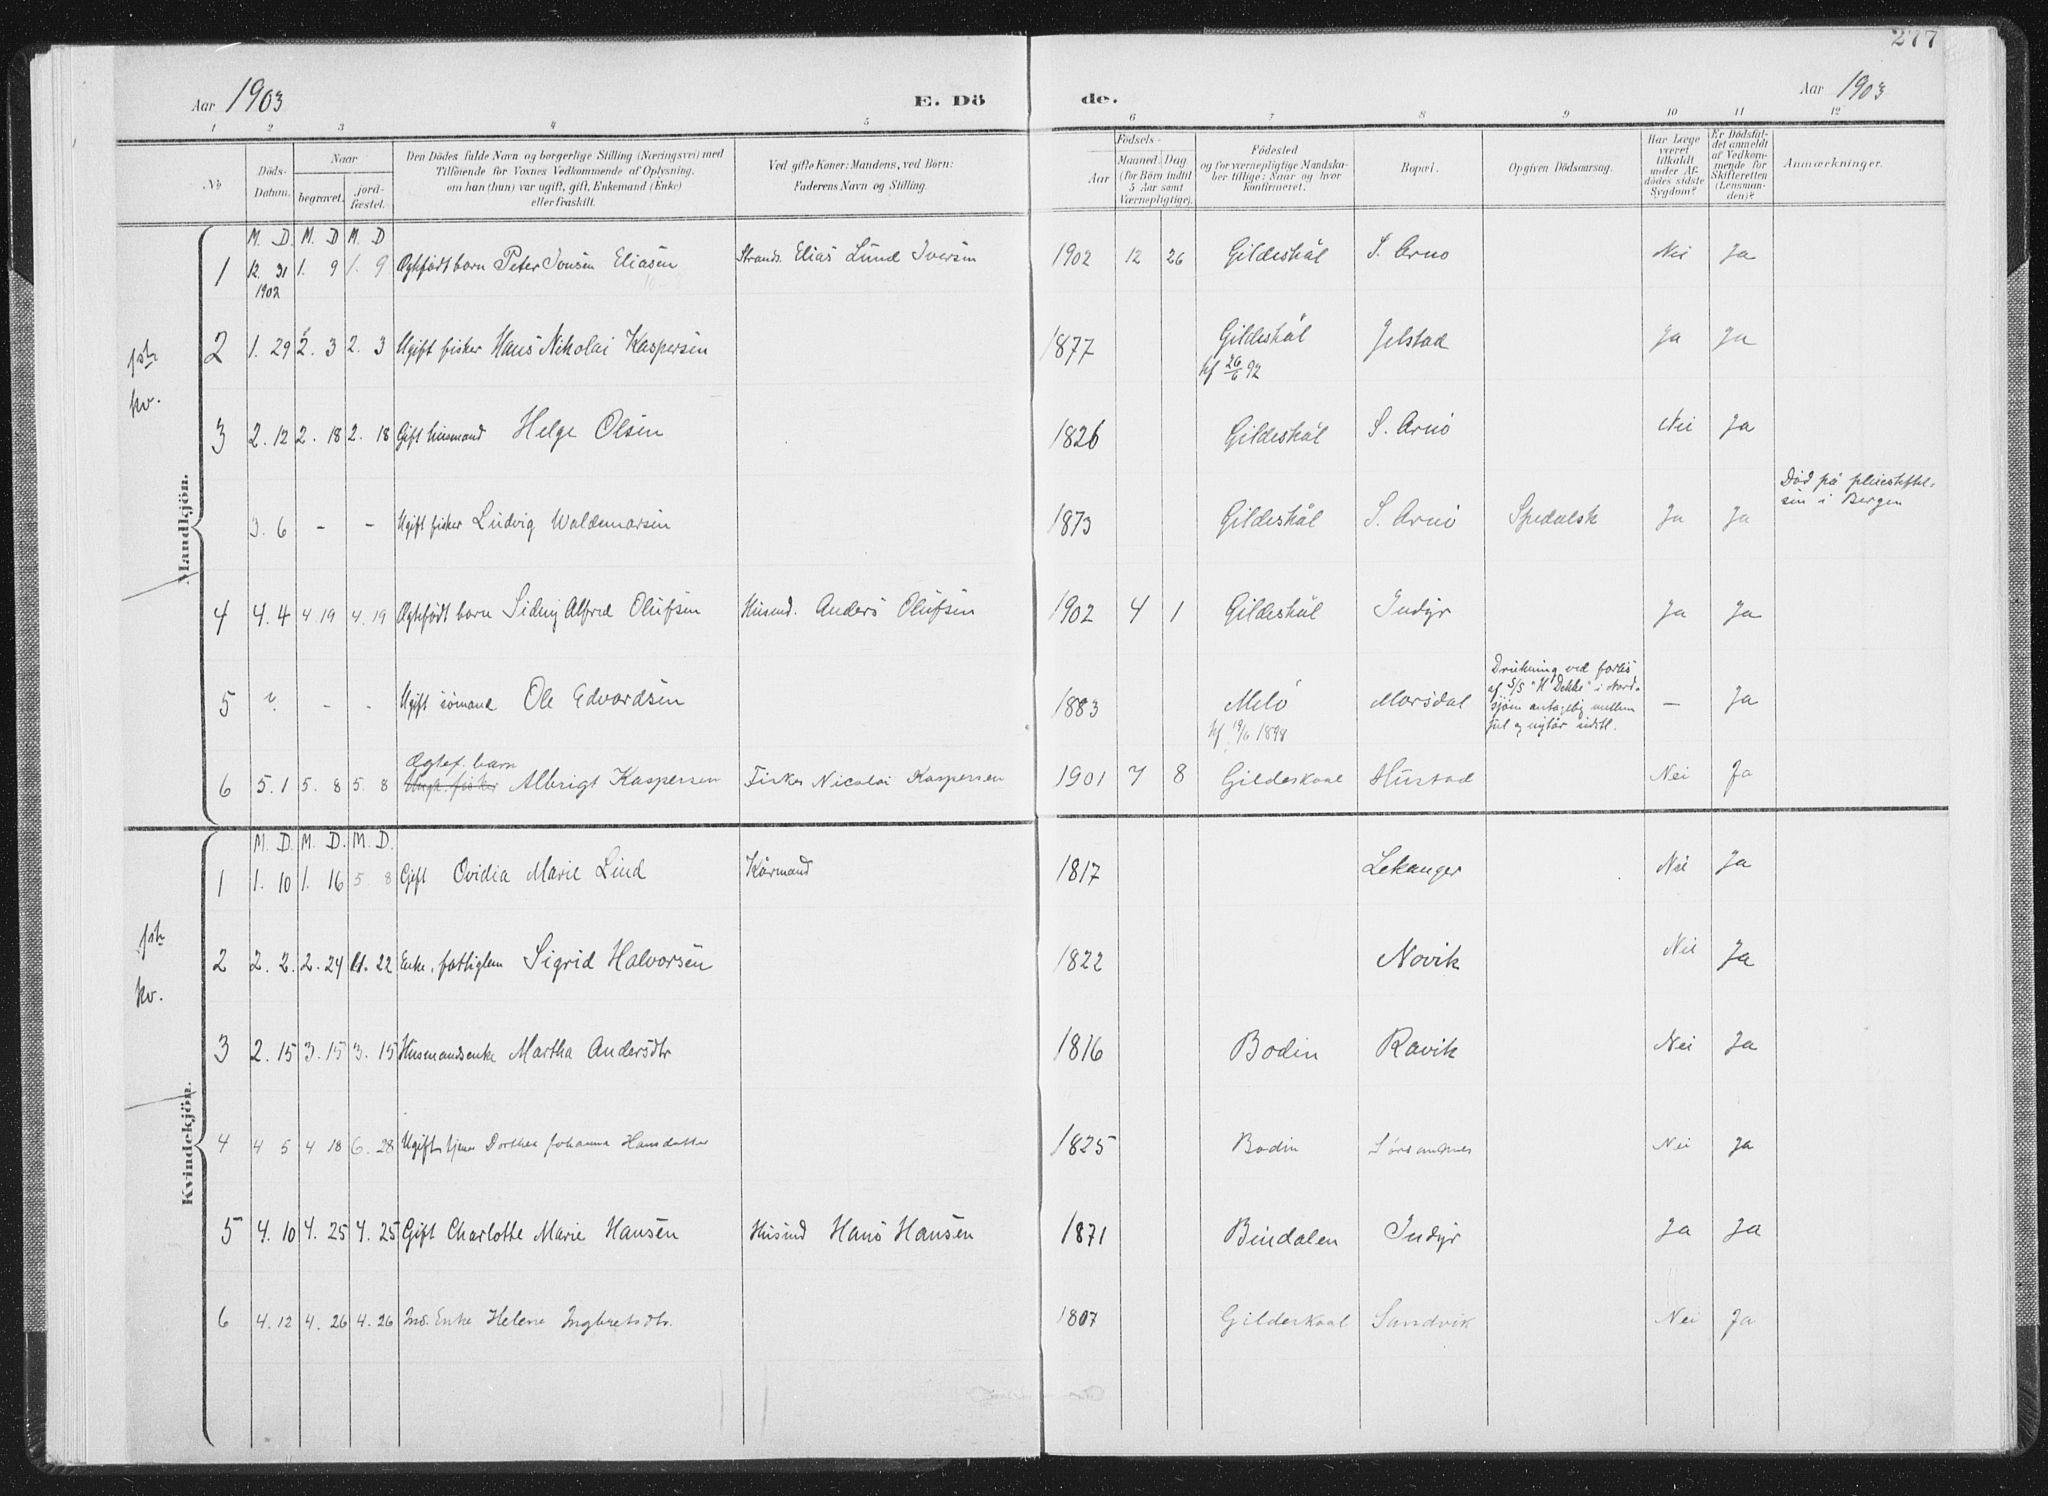 277
Aar 1903
E. Döde.
Aar 1903
1 2 3 4 5 6 7 8 9 10 11 12
No
Döds-Datum.
Naar
begravet.
jord-fæstet.
Den Dödes fulde Navn og borgerlige Stilling (Næringsvei) med
Tilföiende for Voxnes Vedkommende af Oplysning,
om han (hun) var ugift, gift, Enkemand (Enke)
eller fraskilt.
Ved gifte Koner: Mandens, ved Börn:
Faderens Navn og Stilling.
Födsels-
Aar
Maaned Dag
(for Börn indtil
5 Aar samt
Værnepligtige).
Födested
og for værnepligtige Mandska-
ber tillige: Naar og hvor
konfirmeret.
Bopæl.
Opgiven Dödsaarsag.
Har Læge
været
tilkaldt
under Af-
dödes sidste
Sygdom?
Er Dödsfal-
det anmeldt
af Vedkom-
mende for
Skifteretten
(Lensman-
den)?
Anmærkninger.
Mandkjön.
M. D. M. D M. D
1 12. 31 1902 1. 9 1. 9 Ægtefødt barn Peter Jonsen Eliasen Strands. Elias Lund Iversen 1902 12 26 Gildeskål S. Arnø Nei Ja
2 1. 29 2. 3 2. 3 Ugift fisker Hans Nikolai Kaspersen 1877 Gildeskål kf 26/6 92 Jelstad Ja Ja
1ste kv.
3 2. 12 2. 18 2. 18 Gift husmand Helge Olsen 1826 Gildeskål S. Arnø Nei Ja
3. 6 - - Ugift fisker Ludvig Waldemarsen 1873 Gildeskål S. Arnø Spedalsk Ja Ja Død på pleiestiftelsen i Bergen
4 4. 4 4. 19 4. 19 Ægtefødt barn Sidnij Alfred Olufsen Husmd. Anders Olufsen 1902 4 1 Gildeskål Indyr Ja Ja
5 ? - - Ugift sømand Ole Edvardsen 1883 Melø kf 19/6 1898 Morsdal Drukning ved forlis af S/S "H Dekke" i Nordsjøen antagelig mellem jul og nytår sidstl. — Ja
6 5. 1 5. 8 5. 8 Ægtef. barn Ungk. fisker Albrigt Kaspersen Fisker Nicolai Kaspersen 1901 7 8 Gildeskaal Hustad Nei Ja
Kvindekjön.
M. D. M. D. M. D.
1 1. 10 1. 16 5 8 Gift Ovidia Marie Lind Kårmand 1817 Lekanger Nei Ja
1ste kv.
2 2. 2. 2. 24 4. 22 Enke, fattiglem Sigrid Halvorsen 1822 Novik Nei Ja
3 2. 15 3. 15 3. 15 Husmandsenke Martha Andersdtr 1816 Bodin Ravik Nei Ja
4 4 5 4 18 6. 28 Ugift tjener Dorthea Johanna Hansdatter 1825 Bodin Sørsandnes Nei Ja
5 4. 10 4. 25 4. 25 Gift Charlotte Marie Hansen Husmd Hans Hansen 1871 Bindalen Indyr Ja Ja
6 4. 12 4. 26 4. 26 Ins. Enke Helene Ingbretsdtr. 1807 Gildeskaal Sandvik Nei Ja